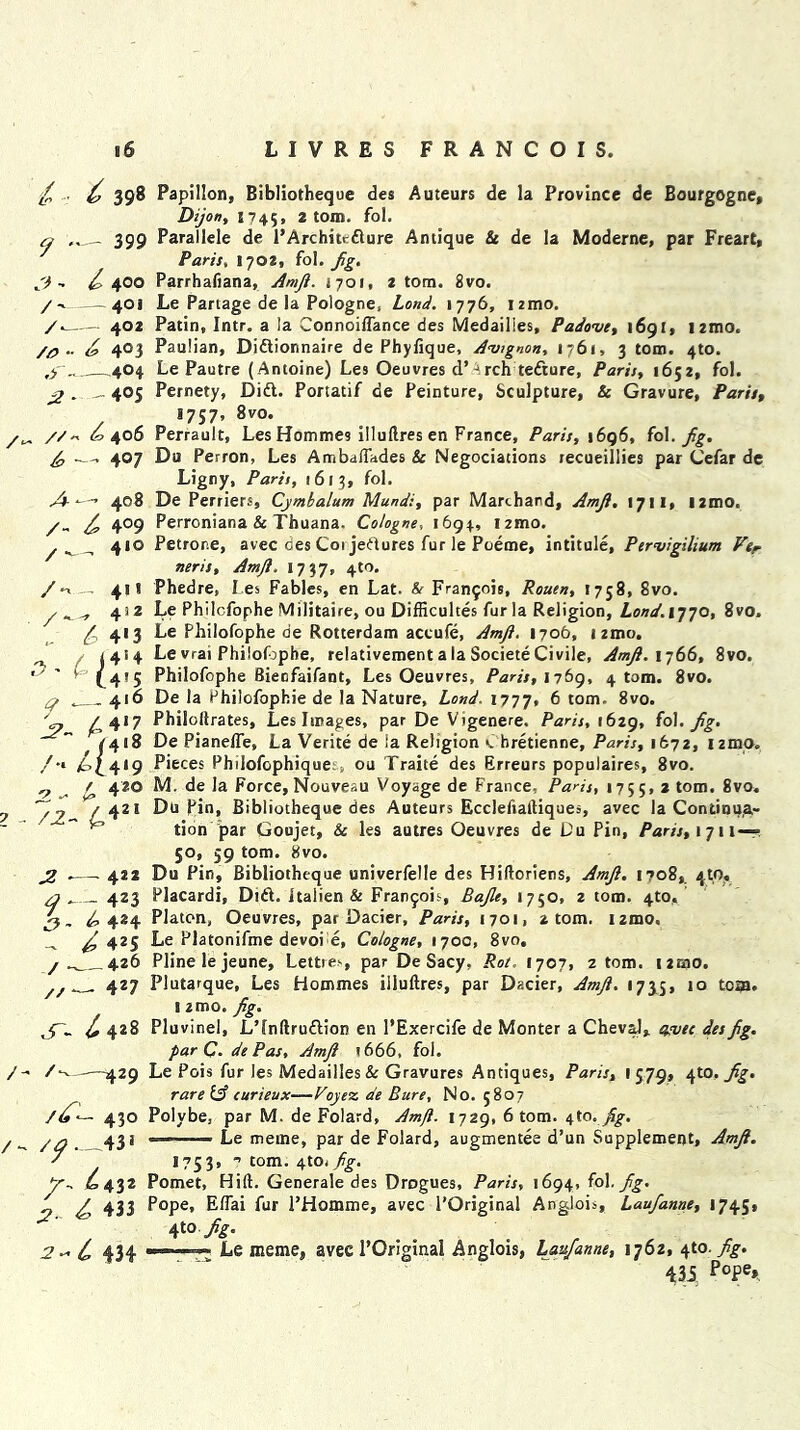 16 LIVRES FRANCOIS.
6 398 Papillon, Bibliotheque des Auteurs de la Province de Bourgogne,
Dijon, 1745, 2 tom. fol.
9 399 Parallele de l'Architecture Antique & de la Moderne, par Freart,
Paris, 1702, fol. fig.
3 - 6 400 Parrhasiana, Amst. 1701, 2 tom. 8vo.
1 - 401 Le Partage de la Pologne, Lond. 1776, 12mo.
1 - 402 Patin, Intr. a la Connoissance des Medailles, Padove, 1691, 12mo.
10 - 6 403 Paulian, Dictionnaire de Physique, Avignon, 1761, 3 tom. 4to.
5 - 404 Le Pautre (Antoine) Les Oeuvres d'Arch tecture, Paris, 1652, fol.
2 - 405 Pernety, Dict. Portatif de Peinture, Sculpture, & Gravure, Paris,
1757, 8vo.
1 - 11 - 6 406 Perrault, Les Hommes illustres en France, Paris, 1696, fol. fig.
6 - 407 Du Perron, Les Ambassades & Negociations recueillies par Cesar de
Ligny, Paris, 1613, fol.
4 - 408 De Perriers, Cymbalum Mundi, par Marchand, Amst. 1711, 12mo.
1 - 6 409 Perroniana & Thuana. Cologne, 1694, 12mo.
1 - 410 Petrone, avec des Conjectures sur le Poéme, intitulé, Pervigilium Ve-
neris, Amst. 1737, 4to.
1 - 411 Phedre, Les Fables, en Lat. & François, Rouen, 1758, 8vo.
1 - 412 Le Philosophe Militaire, ou Difficultés sur la Religion, Lond. 1770, 8vo.
6 413 Le Philosophe de Rotterdam accusé, Amst. 1706, 12mo.
3 - 6 414 Le vrai Philosophe, relativement a la Societé Civile, Amst. 1766, 8vo.
415 Philosophe Bienfaisant, Les Oeuvres, Paris, 1769, 4 tom. 8vo.
9 - 416 De la Philosophie de la Nature, Lond. 1777, 6 tom. 8vo.
2 - 6 417 Philostrates, Les Images, par De Vigenere. Paris, 1629, fol. fig.
418 De Pianesse, La Verité de la Religion Chrétienne, Paris, 1672, 12mo.
1 - 6 419 Pieces Philosophiques, ou Traité des Erreurs populaires, 8vo.
2 - 6 420 M. de la Force, Nouveau Voyage de France, Paris, 1755, 2 tom. 8vo.
2 - 12 - 6 421 Du Pin, Bibliotheque des Auteurs Ecclesiastiques, avec la Continua-
tion par Goujet, & les autres Oeuvres de Du Pin, Paris, 1711—
50, 59 tom. 8vo.
2 - 422 Du Pin, Bibliotheque universelle des Historiens, Amst. 1708, 4to.
9 - 423 Placardi, Dict. Italien & François, Basle, 1750, 2 tom. 4to.
3 - 6 424 Platon, Oeuvres, par Dacier, Paris, 1701, 2 tom. 12mo.
6 425 Le Platonisme devoi é, Cologne, 1700, 8vo.
1 - 426 Pline le jeune, Lettres, par De Sacy, Rot. 1707, 2 tom. 12mo.
11 - 427 Plutarque, Les Hommes illustres, par Dacier, Amst. 1735, 10 tom.
12mo. fig.
5 - 6 428 Pluvinel, L'Instruction en l'Exercise de Monter a Cheval, avec des fig.
par C. de Pas, Amst 1666, fol.
1 - 1 - 429 Le Pois sur les Medailles & Gravures Antiques, Paris, 1579, 4to. fig.
rare & curieux—Voyez de Bure, No. 5807
16 - 430 Polybe, par M. de Folard, Amst. 1729, 6 tom. 4to. fig.
1 - 19 - 431 ——— Le meme, par de Folard, augmentée d'un Supplement, Amst.
1753, 7 tom. 4to. fig.
7 - 6 432 Pomet, Hist. Generale des Drogues, Paris, 1694, fol. fig.
2 - 6 433 Pope, Essai sur l'Homme, avec l'Original Anglois, Lausanne, 1745,
4to fig.
2 - 6 434 ——— Le meme, avec l'Original Anglois, Lausanne, 1762, 4to. fig.
435 Pope,